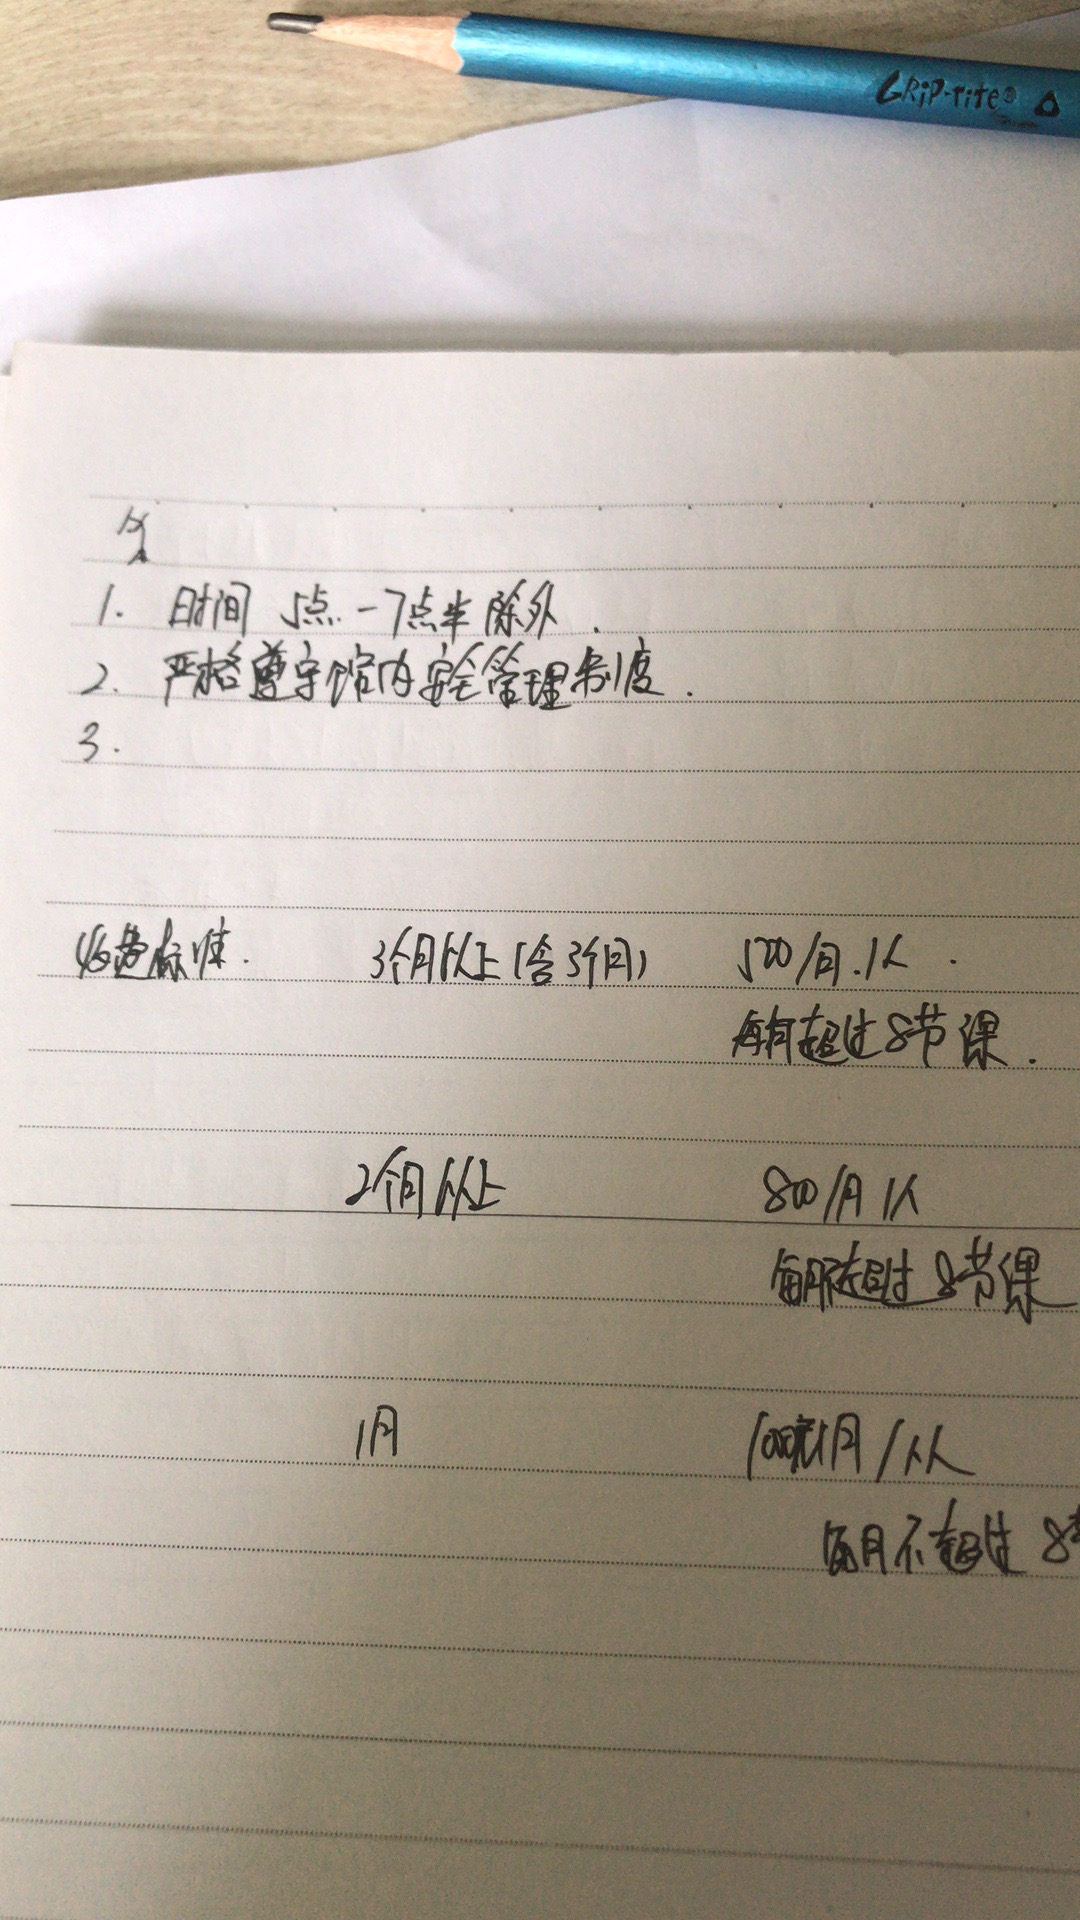 GRIP-rite®
1. 时间 5点-7点半除外.
2. 严格遵守馆内安全管理制度.
3.
收费标准. 3个月以上(含3个月) 500/月.1人.
每月不超过8节课.
2个月以上 800/月 1人
每月不超过8节课
1月 1000元/1月/1人
每月不超过 8节